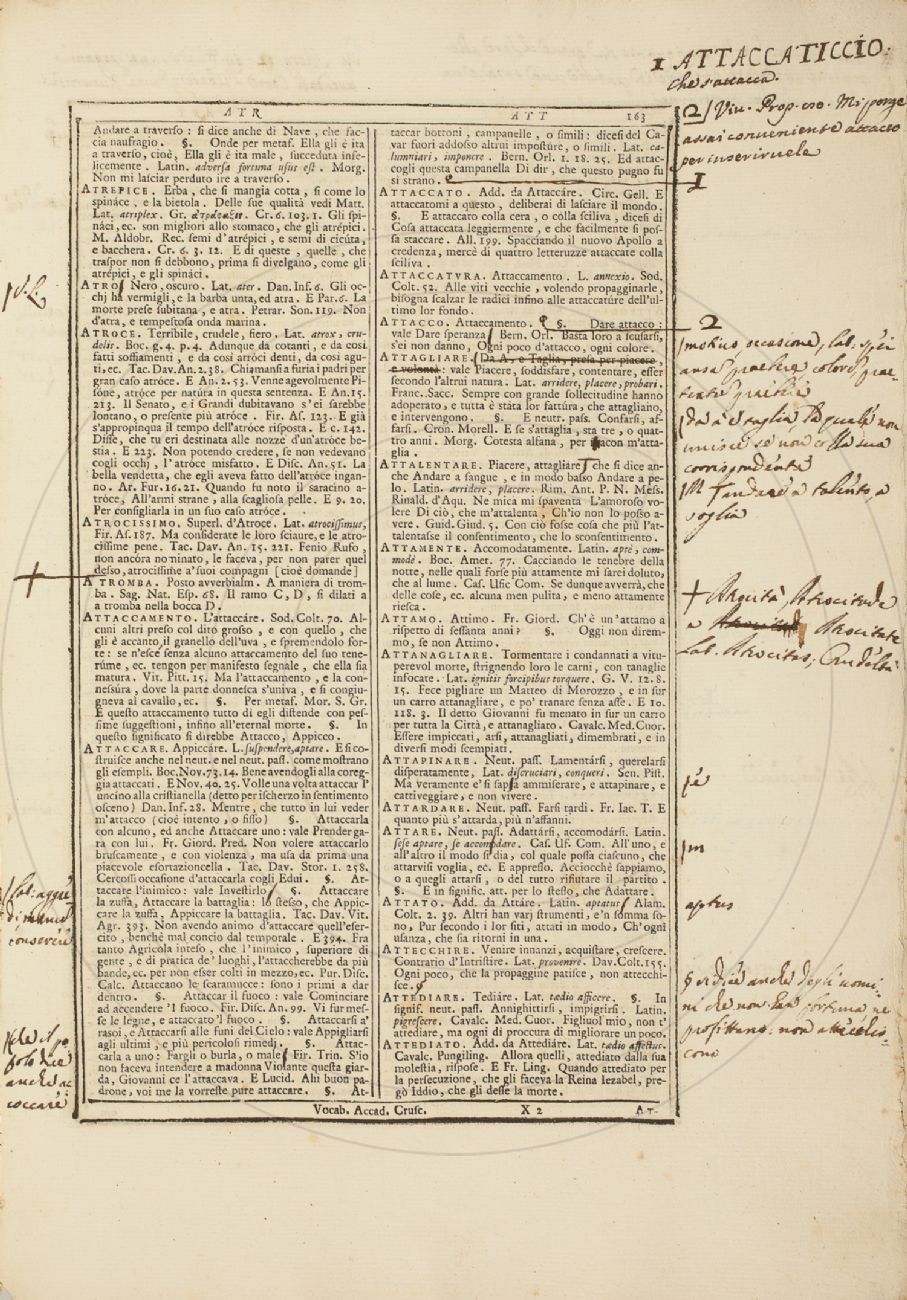 1 ATTACCATICCIO.
che s'attacca.
ATR
ATT 163
Andare a traverso : si dice anche di Nave , che fac-
cia naufragio. §. Onde per metaf. Ella gli è ita
a traverso, cioè, Ella gli è ita male , succeduta infe-
licemente . Latin. adversa fortuna usus est . Morg.
Non mi lasciar perduto ire a traverso .
ATREPICE. Erba, che si mangia cotta , si come lo
spináce , e la bietola . Delle sue qualità vedi Matt.
Lat. atriplex. Gr. Cr. 6. 103. 1. Gli spi-
náci, ec. son migliori allo stomaco, che gli atrépici.
M. Aldobr. Rec. semi d'atrépici , e semi di cicúta,
e bacchera. Cr. 6. 3. 12. E di queste , quelle , che
traspor non si debbono, prima si divelgano, come gli
atrépici, e gli spináci.
ATRO Nero, oscuro. Lat. ater. Dan. Inf. 6. Gli oc-
chj ha vermigli, e la barba unta, ed atra. E Par. 6. La
morte prese subitana , e atra. Petrar. Son. 119. Non
d'atra, e tempestosa onda marina.
ATROCE. Terribile, crudele, fiero. Lat. atrox, cru-
delis. Boc. g. 4. p. 4. Adunque da cotanti , e da cosi
fatti soffiamenti , e da cosi atróci denti, da cosi agu-
ti, ec. Tac. Dav. An. 2. 38. Chiamansi a furia i padri per
gran caso atróce. E An. 2. 53. Venne agevolmente Pi-
sóne, atróce per natúra in questa sentenza. E An. 15.
213. Il Senato, e i Grandi dubitavano s'ei sarebbe
lontano, o presente più atróce. Fir. As. 123. E già
s'appropinqua il tempo dell'atróce risposta. E c. 142.
Disse, che tu eri destinata alle nozze d'un'atróce be-
stia . E 223. Non potendo credere, se non vedeano
cogli occhj , l'atróce misfatto. E Disc. An. 51. La
bella vendetta, che egli aveva fatto dell'atróce ingan-
no. Ar. Fur. 16. 21. Quando fu noto il saracino a-
tróce, All'armi strane , alla scagliosa pelle. E 9. 20.
Per consigliarla in un suo caso atróce.
ATROCISSIMO. Superl. d'Atroce. Lat. atrocissimus,
Fir. As. 187. Ma considerate le loro sciaure, e le atro-
cissime pene. Tac. Dav. An. 15. 221. Fenio Rufo ,
non ancóra nominato, le faceva, per non parer quel
desso, atrocissime a'suoi compagni [cioè domande]
A TROMBA. Posto avverbialm. A maniera di trom-
ba. Sag. Nat. Esp. 68. Il ramo C, D, si dilati a
a tromba nella bocca D.
ATTACCAMENTO. L'attaccáre. Sod. Colt. 70. Al-
cuni altri preso col dito grosso , e con quello , che
gli è accanto il granello dell'uva , e spremendolo for-
te : se n'esce senza alcuno attaccamento del suo tene-
rúme, ec. tengon per manifesto segnale, che ella sia
matura. Vit. Pitt. 15. Ma l'attaccamento , e la con-
nessúra , dove la parte donnesca s'univa , e si congiu-
gneva al cavallo, ec. §. Per metaf. Mor. S. Gr.
E questo attaccamento tutto di egli distende con pes-
sime suggestioni, infino all'eternal morte. §. In
questo significato si direbbe Attacco, Appicco.
ATTACCARE. Appiccáre. L. suspendere, aptare. E si co-
struisce anche nel neut. e nel neut. pass. come mostrano
gli esempli. Boc. Nov. 73. 14. Bene avendogli alla coreg-
gia attaccati. E Nov. 40. 25. Volle una volta attaccar l'
uncino alla cristianella (detto per ischerzo in sentimento
osceno) Dan. Inf. 28. Mentre , che tutto in lui veder
m'attacco (cioè intento, o fisso) §. Attaccarla
con alcuno, ed anche Attaccare uno : vale Prender ga-
ra con lui. Fr. Giord. Pred. Non volere attaccarlo
bruscamente , e con violenza , ma usa da prima una
piacevole esortazioncella . Tac. Dav. Stor. 1. 258.
Cercossi occasione d'attaccarla cogli Edui. §. At-
taccare l'inimico : vale Investirlo §. Attaccare
la zuffa, Attaccare la battaglia : lo stesso, che Appic-
care la zuffa, Appiccare la battaglia. Tac. Dav. Vit.
Agr. 393. Non avendo animo d'attaccare quell'eser-
cito , benchè mal concio dal temporale . E 394. Fra
tanto Agricola inteso , che l'inimico , superiore di
gente , e di pratica de' luoghi, l'attaccherebbe da più
bande, ec. per non esser colti in mezzo, ec. Pur. Disc.
Calc. Attaccano le scaramucce : sono i primi a dar
dentro. §. Attaccar il fuoco : vale Cominciare
ad accendere 'l fuoco. Fir. Disc. An. 99. Vi fur mes-
se le legne, e attaccato 'l fuoco . §. Attaccarsi a'
rasoi , e Attaccarsi alle funi del Cielo : vale Appigliarsi
agli ultimi , e più pericolosi rimedj. §. Attac-
carla a uno : Fargli o burla, o male Fir. Trin. S'io
non faceva intendere a madonna Violante questa giar-
da, Giovanni ce l'attaccava. E Lucid. Ahi buon pa-
drone, voi me la vorreste pure attaccare. §. At-
taccar bottoni , campanelle , o simili : dicesi del Ca-
var fuori addosso altrui imposture, o simili. Lat. ca-
lumniari, imponere . Bern. Orl. 1. 18. 25. Ed attac-
cogli questa campanella Di dir, che questo pugno fu
si strano.
ATTACCATO. Add. da Attaccáre. Circ. Gell. E
attaccatomi a questo, deliberai di lasciare il mondo.
§. E attaccato colla cera , o colla sciliva , dicesi di
Cosa attaccata leggiermente , e che facilmente si pos-
sa staccare . All. 199. Spacciando il nuovo Apollo a
credenza, mercè di quattro letteruzze attaccate colla
sciliva.
ATTACCATURA. Attaccamento. L. annexio. Sod.
Colt. 52. Alle viti vecchie , volendo propagginarle,
bisogna scalzar le radici infino alle attaccatúre dell'ul-
timo lor fondo.
ATTACCO. Attaccamento. §. Dare attacco :
vale Dare speranza Bern. Orl. Basta loro a scusarsi,
s'ei non danno, Ogni poco d'attacco, ogni colore.
ATTAGLIARE. Da A, e Taglia, presa per piacere ,
e volontà : vale Piacere, soddisfare, contentare, esser
secondo l'altrui natura. Lat. arridere, placere, probari.
Franc. Sacc. Sempre con grande sollecitudine hanno
adoperato, e tutta è stata lor fattúra, che attagliano,
e intervengono. §. E neutr. pass. Confarsi, af-
farsi. Cron. Morell. E se s'attaglia, sta tre , o quat-
tro anni. Morg. Cotesta alfana , per macon m'atta-
glia.
ATTALENTARE. Piacere, attagliare che si dice an-
che Andare a sangue , e in modo basso Andare a pe-
lo. Latin. arridere, placere. Rim. Ant. P. N. Mess.
Rinald. d'Aqu. Ne mica mi spaventa L'amoroso vo-
lere Di ciò, che m'attalenta, Ch'io non lo posso a-
vere. Guid. Giud. 5. Con ciò fosse cosa che più l'at-
talentasse il consentimento, che lo sconsentimento.
ATTAMENTE. Accomodatamente. Latin. aptè, com-
modè. Boc. Amet. 77. Cacciando le tenebre della
notte, nelle quali forse più attamente mi sarei doluto,
che al lume. Cas. Ufic. Com. Se dunque avverrà, che
delle cose, ec. alcuna men pulita , e meno attamente
riesca.
ATTAMO. Attimo. Fr. Giord. Ch'è un'attamo a
rispetto di sessanta anni ? §. Oggi non direm-
mo, se non Attimo.
ATTANAGLIARE. Tormentare i condannati a vitu-
perevol morte, strignendo loro le carni, con tanaglie
infocate. Lat. ignitis forcipibus torquere. G. V. 12. 8.
15. Fece pigliare un Matteo di Morozzo , e in sur
un carro attanagliare, e po' tranare senza asse. E 10.
118. 3. Il detto Giovanni fu menato in sur un carro
per tutta la Città, e attanagliato. Cavalc. Med. Cuor.
Essere impiccati , arsi, attanagliati, dimembrati, e in
diversi modi scempiati.
ATTAPINARE. Neut. pass. Lamentársi, querelarsi
disperatamente, Lat. discruciari, conqueri. Sen. Pist.
Ma veramente e' si sappia ammiserare, e attapinare, e
cattiveggiare, e non vivere.
ATTARDARE. Neut. pass. Farsi tardi. Fr. Iac. T. E
quanto più s'attarda, più n'affanni.
ATTARE. Neut. pass. Adattársi, accomodársi. Latin.
sese aptare, se accomodare. Cas. Uf. Com. All'uno, e
all'altro il modo si dia, col quale possa ciascuno, che
attarvisi voglia, ec. E appresso. Acciocchè sappiamo,
o a quegli attarsi , o del tutto rifiutare il partito .
§. E in signific. att. per lo stesso, che Adattare.
ATTATO. Add. da Attáre. Latin. aptatus Alam.
Colt. 2. 39. Altri han varj strumenti, e'n somma so-
no, Pur secondo i lor siti, attati in modo, Ch'ogni
usanza, che sia ritorni in una.
ATTECCHIRE. Venire innanzi, acquistare, crescere.
Contrario d'Intristire. Lat. provenire. Dav. Colt. 155.
Ogni poco, che la propaggine patisce, non attecchi-
sce.
ATTEDIARE. Tediáre. Lat. tædio afficere. §. In
signific. neut. pass. Annighittirsi , impigrirsi. Latin.
pigrescere. Cavalc. Med. Cuor. Figliuol mio, non t'
attediare, ma ogni dì proccura di migliorare un poco.
ATTEDIATO. Add. da Attediáre. Lat. tædio affectus.
Cavalc. Pungiling. Allora quelli, attediato dalla sua
molestia, rispose. E Fr. Ling. Quando attediato per
la persecuzione, che gli faceva la Reina Iezabel, pre-
gò Iddio, che gli desse la morte.
Vocab. Accad. Crusc. X 2 AT-
2/ Viv. Prop. Mi porge
assai conveniente attacco
per inserirvele
1
2
+ Atrocità, Atrocitade
e Atrocitate
Lat. Atrocitas, Crudeltà
aptus